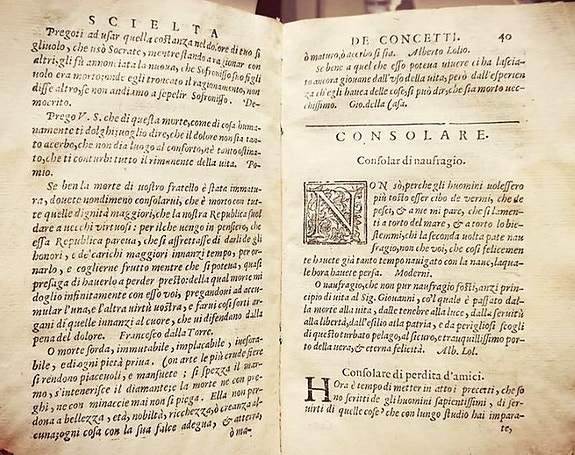 SCIELTA
Pregoti ad usar quella costanza nel dolore di tuo fi
gliuolo, che usò Socrate, mentre stando a ragionar con
altri, gli fù annonciata la nuova, che Sofronisso suo figli
uolo era morto; onde egli troncato il ragionamento, non
disse altro, se non andiamo a sepelir Sofronisso. De-
mocrito.
Prego V. S. che di questa morte, come di cosa huma-
namente ti dolghi; voglio dire, che il dolore non sia tan
to acerbo, che non dia luogo al conforto, nè tanto ostina-
to, che ti conturbi tutto il rimanente della vita. Po-
mio.
Se ben la morte di uostro fratello è stata immatu-
ra, dovete nondimeno consolarvi, che è morto con tut-
te quelle dignità maggiori, che la nostra Republica suol
dare a uechi virtuosi: per ilche uengo in pensiero, che
essa Republica pareua, che si affrettasse di darli de gli
honori, e de' carichi maggiori innanzi tempo, per or-
narlo, e coglierne frutto mentre che si poteua, quasi
presaga di hauerlo a perder presto: della qual morte mi
doglio infinitamente con esso voi, pregandoui ad accu-
mular l'una, e l'altra uirtù uostra, e farui cosi forti ar-
gani di quelle innanzi al cuore, che ui difendano dalla
pena del dolore. Francesco dalla Torre.
O morte sorda, immutabile, implacabile, inesora-
bile, e di ogni pietà priua. Con arte le più crude fiere
si rendono piaceuoli, e mansuete; si spezza il mar-
mo, s'intenerisce il diamante; la morte ne con pre-
ghi, ne con minaccie mai non si piega. Ella non per-
dona a bellezza, età, nobiltà, ricchezza, ò creanza al-
cuna; ogni cosa con la sua falce adegua, & atterra,
ò ma-
DE CONCETTI. 40
ò maturo, ò acerbo si sia. Alberto Lolio.
Se bene a quel che esso poteua viuere ci ha lascia-
to ancora giouane dall'vso della vita, però dall'esperien
za ch'egli hauea delle cose, si può dir, che sia morto uec-
chissimo. Gio. della Casa.
CONSOLARE.
Consolar di naufragio.
NON sò, perche gli huomini uolessero
più tosto esser cibo de vermi, che de
pesci, & a me mi pare, che si lamenti
a torto del mare, & a torto lo bie-
stemmi; chi la seconda uolta pate nau
fragio, non che voi, che cosi felicemen
te hauete già tanto tempo nauigato con la naue, laqua-
le hora hauete persa. Moderni.
O naufragio, che non pur naufragio fosti, anzi prin-
cipio di uita al Sig. Giouanni, co'l quale è passato dal-
la morte alla uita, dalle tenebre alla luce, dalla seruitù
alla libertà, dall'esilio alla patria, e da perigliosi scogli
di questo turbato pelago, al sicuro, e tranquillissimo por-
to della uera, & eterna felicità. Alb. Lol.
Consolare di perdita d'amici.
HOra è tempo di metter in atto i precetti, che so
no scritti de gli huomini sapientissimi, di ser-
uirti di quelle cose che con lungo studio hai impara-
te,